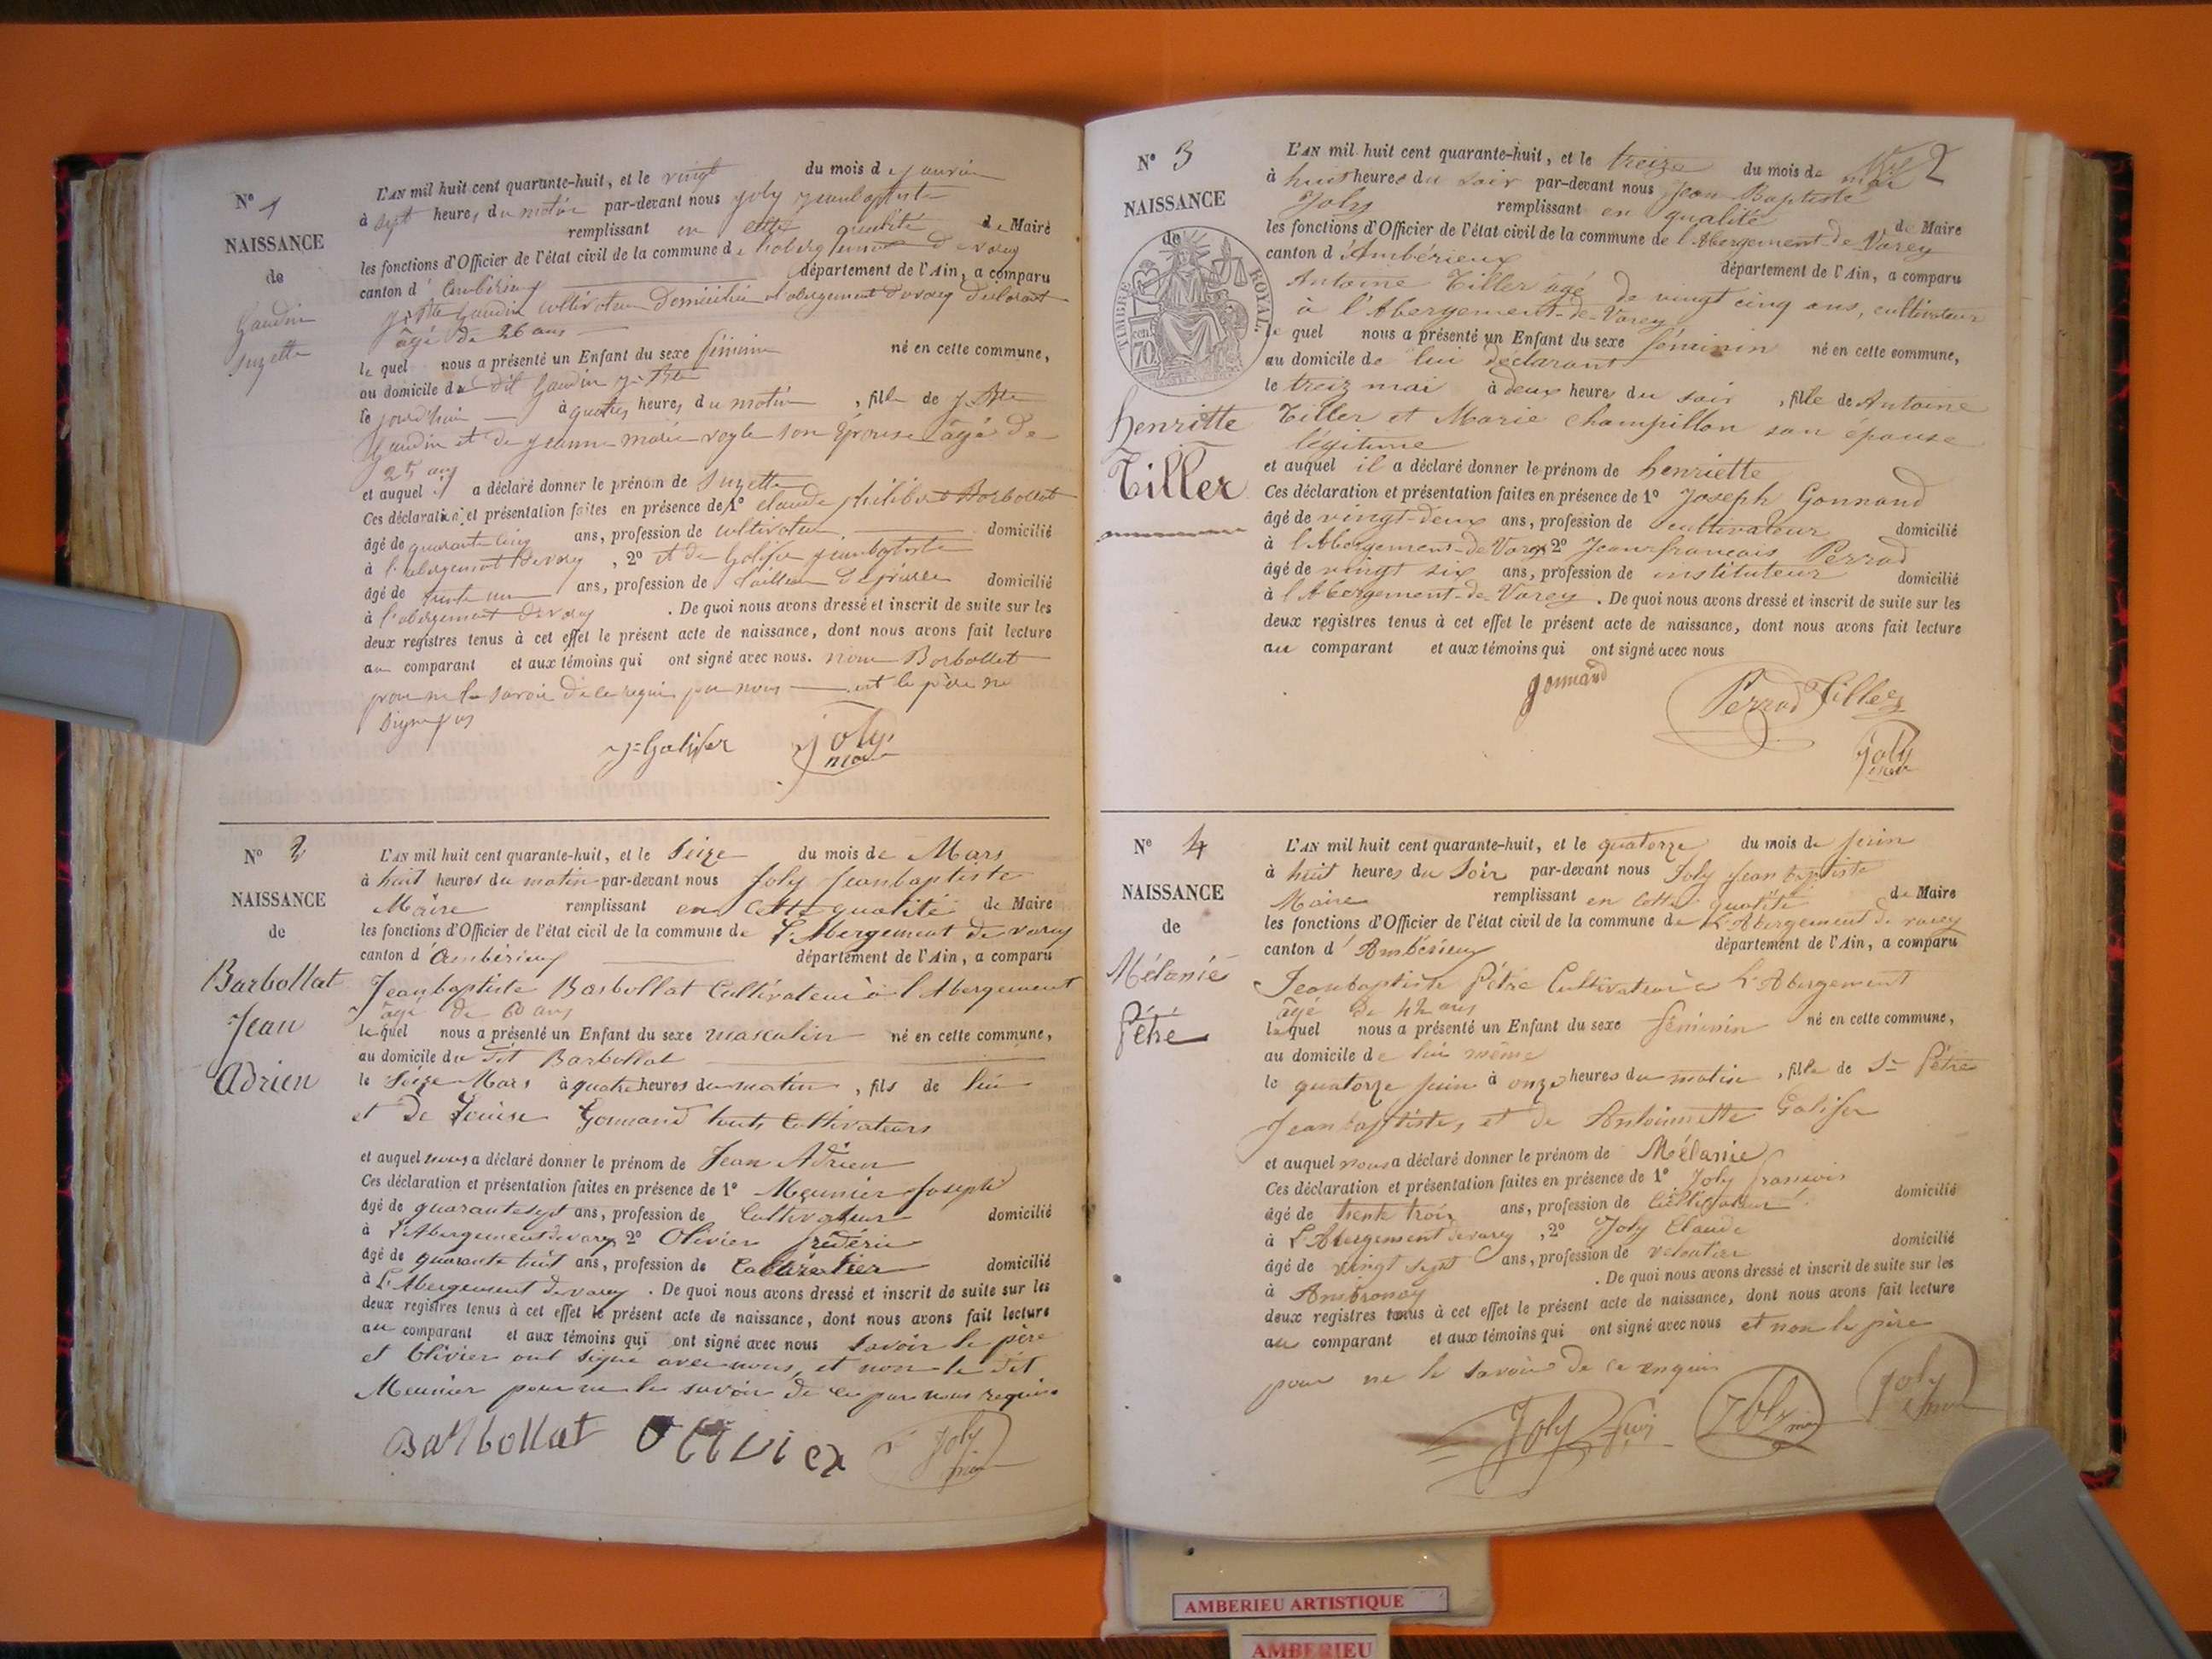 N° 1
NAISSANCE
de
Gaudin
Suzette
L'AN mil huit cent quarante-huit, et le vingt du mois de janvier
à sept heures du matin par-devant nous Joly jeanbaptiste
remplissant en cette qualité de Maire
les fonctions d'Officier de l'état civil de la commune de
canton d' Ambérieux département de l'Ain, a comparu
Gaudin cultivateur domicilié
âgé de 26 ans
le quel nous a présenté un Enfant du sexe féminin né en cette commune,
au domicile du dit Gaudin
le jourd'hui à quatre heures du matin, fille de
Gaudin et de Jeanne marie son épouse âgé de
25 ans
et auquel il a déclaré donner le prénom de Suzette
Ces déclaration et présentation faites en présence de 1° Claude philibert Borbollat
âgé de quarante cinq ans, profession de cultivateur domicilié
à l'abergement de varey, 2° et de Golifer jeanbaptiste
âgé de trente un ans, profession de domicilié
à l'abergement de varey. De quoi nous avons dressé et inscrit de suite sur les
deux registres tenus à cet effet le présent acte de naissance, dont nous avons fait lecture
au comparant et aux témoins qui ont signé avec nous. non Borbollat
pour ne le savoir de ce requis par nous et le père ne
signe pas
J. Golifer Joly
N° 2
NAISSANCE
de
Barbollat
Jean
Adrien
L'AN mil huit cent quarante-huit, et le Seize du mois de Mars
à huit heures du matin par-devant nous Joly Jeanbaptiste
Maire remplissant en cette qualité de Maire
les fonctions d'Officier de l'état civil de la commune de L'Abergement de varey
canton d'Ambérieux département de l'Ain, a comparu
Jeanbaptiste Barbollat Cultivateur à l'Abergement
âgé de 60 ans
lequel nous a présenté un Enfant du sexe masculin né en cette commune,
au domicile du dit Barbollat
le Seize Mars à quatre heures du matin, fils de lui
et de Louise Gonnand touts Cultivateurs
et auquel nous a déclaré donner le prénom de Jean Adrien
Ces déclaration et présentation faites en présence de 1° Meunier Joseph
âgé de quarante sept ans, profession de Cultivateur domicilié
à L'Abergement de varey 2° Olivier fréderic
âgé de quarante huit ans, profession de Cabaretier domicilié
à L'Abergement de varey. De quoi nous avons dressé et inscrit de suite sur les
deux registres tenus à cet effet le présent acte de naissance, dont nous avons fait lecture
au comparant et aux témoins qui ont signé avec nous savoir le père
et Olivier ont signé avec nous, et non le dit
Meunier pour ne le savoir de ce par nous requis
Barbollat Olivier Joly
N° 3
NAISSANCE
de
TIMBRE ROYAL
70
henriette
Tiller
L'AN mil huit cent quarante-huit, et le treize du mois de mai 2
à huit heures du soir par-devant nous Jean Baptiste
Joly remplissant en qualité de Maire
les fonctions d'Officier de l'état civil de la commune de l'Abergement-de-Varey
canton d'Ambérieux département de l'Ain, a comparu
Antoine Tiller âgé de vingt cinq ans, cultivateur
à l'Abergement-de-Varey
le quel nous a présenté un Enfant du sexe féminin né en cette commune,
au domicile de lui déclarant
le treiz mai à deux heures du soir, fille de Antoine
Tiller et Marie Champillon son épouse
légitime
et auquel il a déclaré donner le prénom de henriette
Ces déclaration et présentation faites en présence de 1° Joseph Gonnand
âgé de vingt-deux ans, profession de cultivateur domicilié
à l'Abergement-de-Varey 2° Jean francais Perrod
âgé de vingt six ans, profession de instituteur domicilié
à l'Abergement-de-Varey. De quoi nous avons dressé et inscrit de suite sur les
deux registres tenus à cet effet le présent acte de naissance, dont nous avons fait lecture
au comparant et aux témoins qui ont signé avec nous
gonnand
Perrod Tiller
Joly
N° 4
NAISSANCE
de
Mélanie
Pétre
L'AN mil huit cent quarante-huit, et le quatorze du mois de juin
à huit heures du Soir par-devant nous Joly Jean baptiste
Maire remplissant en cette qualité de Maire
les fonctions d'Officier de l'état civil de la commune de L'Abergement de varey
canton d'Ambérieux département de l'Ain, a comparu
Jeanbaptiste Pétre Cultivateur à L'Abergement
âgé de 42 ans
lequel nous a présenté un Enfant du sexe féminin né en cette commune,
au domicile de lui même
le quatorze juin à onze heures du matin, fille de Sr Pétre
Jeanbaptiste, et de Antoinette Golifer
et auquel nous a déclaré donner le prénom de Mélanie
Ces déclaration et présentation faites en présence de 1° Joly francois
âgé de trente trois ans, profession de Cultivateur domicilié
à L'Abergement de varey, 2° Joly Claude
âgé de vingt sept ans, profession de domicilié
à Ambronay. De quoi nous avons dressé et inscrit de suite sur les
deux registres tenus à cet effet le présent acte de naissance, dont nous avons fait lecture
au comparant et aux témoins qui ont signé avec nous et non le père
pour ne le savoir de ce enquis
Joly Joly Joly
AMBERIEU ARTISTIQUE
AMBERIEU